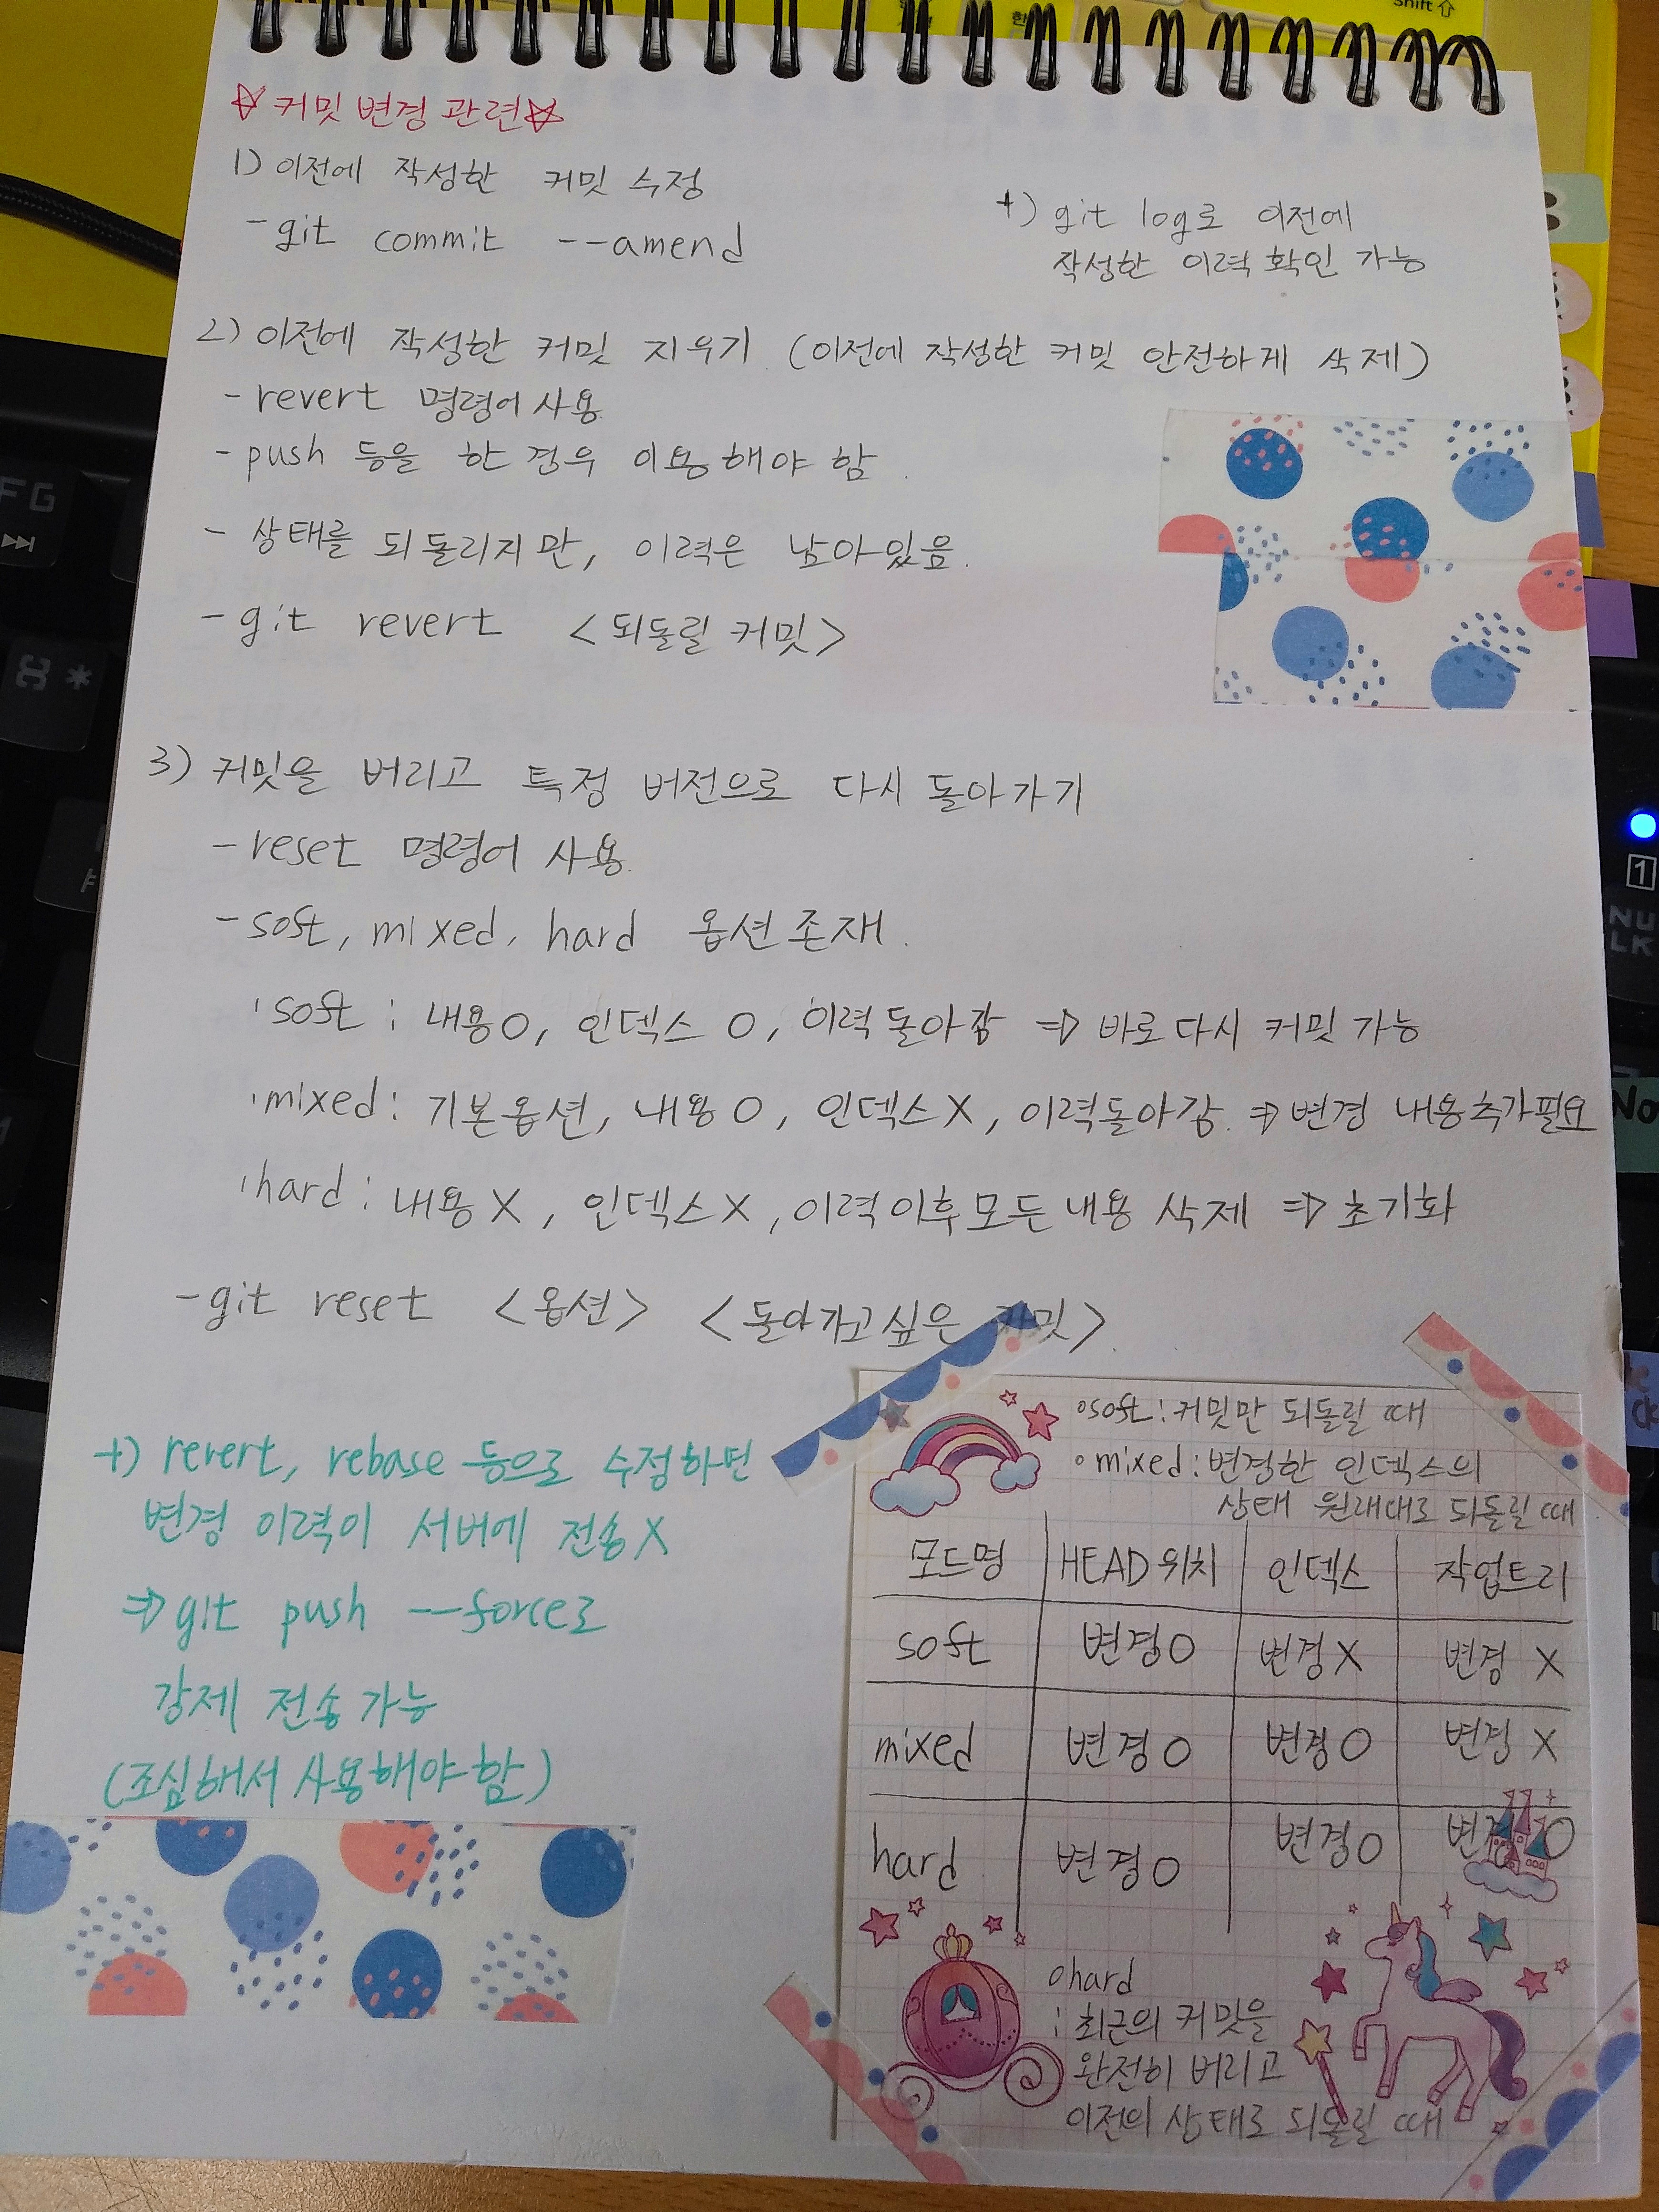 ☆ 커밋 변경 관련 ☆
1) 이전에 작성한 커밋 수정
- git commit --amend
+) git log로 이전에
작성한 이력 확인 가능
2) 이전에 작성한 커밋 지우기 (이전에 작성한 커밋 안전하게 삭제)
- revert 명령어 사용
- push 등을 한 경우 이용해야 함.
- 상태를 되돌리지만, 이력은 남아있음.
- git revert <되돌릴 커밋>
3) 커밋을 버리고 특정 버전으로 다시 돌아가기
- reset 명령어 사용.
- soft, mixed, hard 옵션 존재.
· soft : 내용 O, 인덱스 O, 이력 돌아감 => 바로 다시 커밋 가능
· mixed : 기본옵션, 내용 O, 인덱스 X, 이력돌아감. => 변경 내용추가필요
· hard : 내용 X, 인덱스 X, 이력이후모든내용 삭제 => 초기화
- git reset <옵션> <돌아가고싶은 커밋>.
+) revert, rebase 등으로 수정하면
변경 이력이 서버에 전송 X
=> git push --force로
강제 전송가능
(조심해서 사용해야 함)
o soft : 커밋만 되돌릴 때
o mixed : 변경한 인덱스의
상태 원래대로 되돌릴 때
모드명 HEAD위치 인덱스 작업트리
soft 변경 O 변경 X 변경 X
mixed 변경 O 변경 O 변경 X
hard 변경 O 변경 O 변경 O
o hard
: 최근의 커밋을
완전히 버리고
이전의 상태로 되돌릴 때
Shift
한
FG
*
1
NU
LK
No